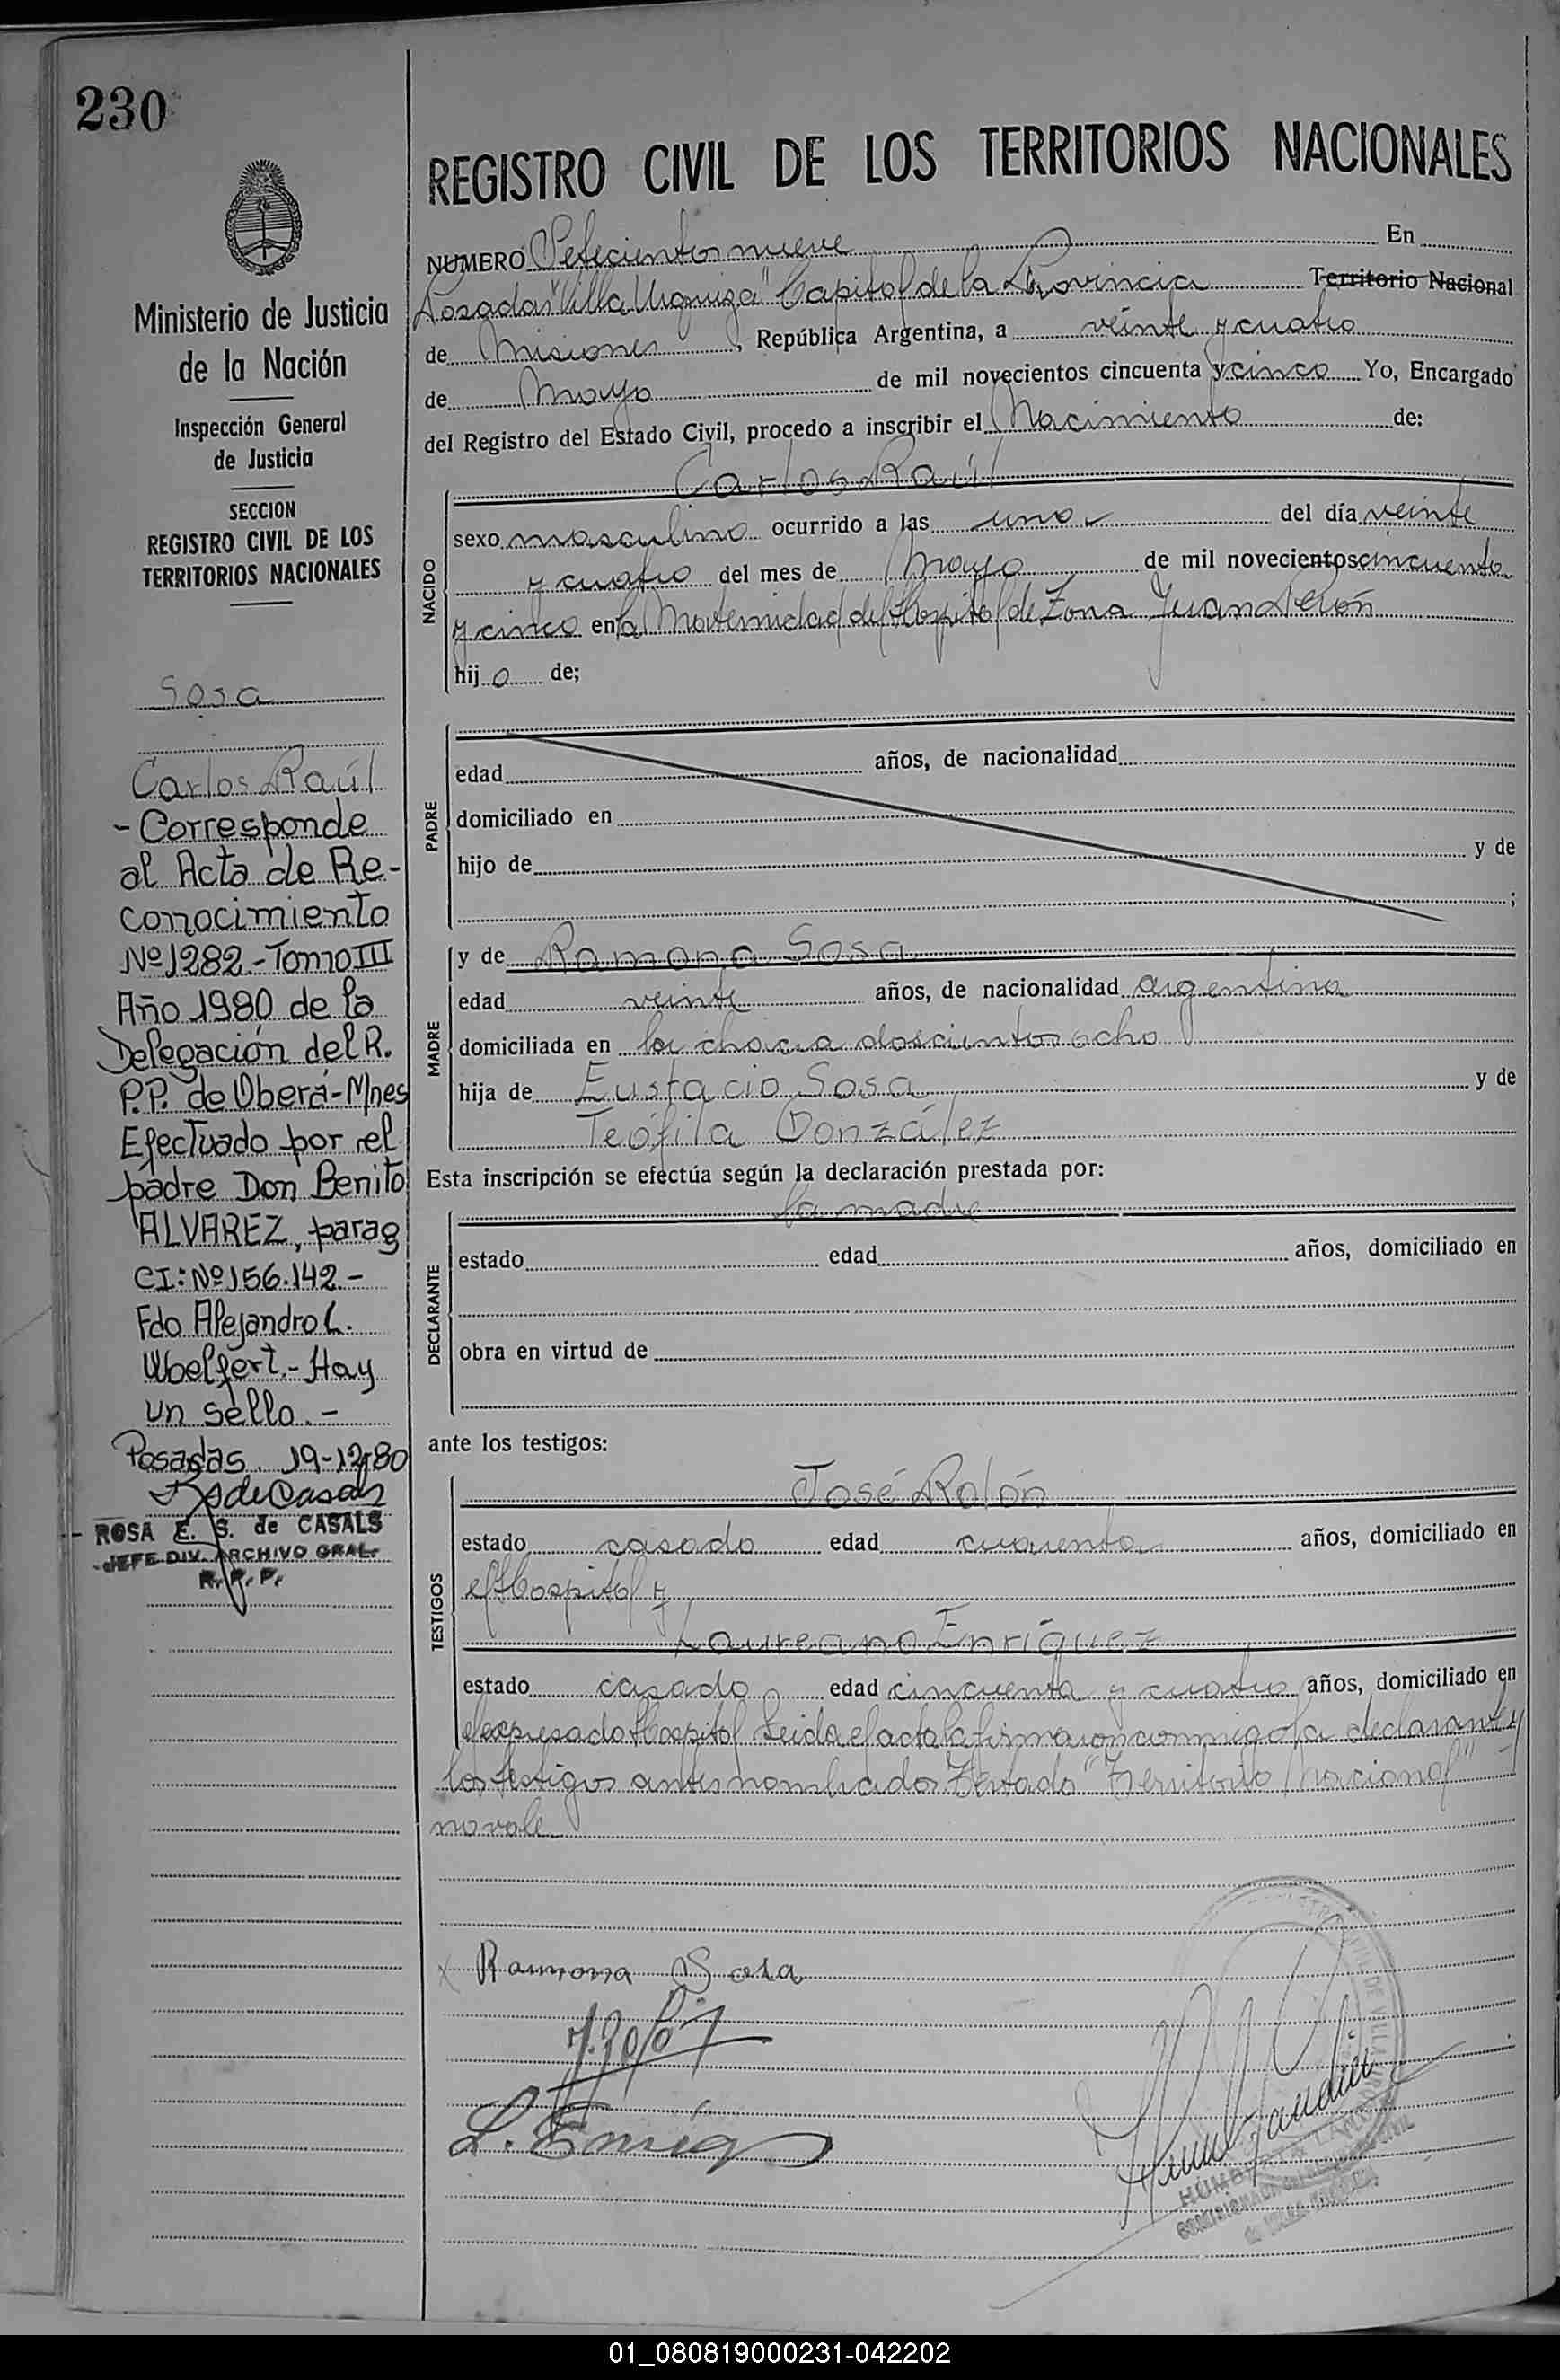 230
Ministerio de Justicia
de la Nación
Inspección General
de Justicia
SECCION
REGISTRO CIVIL DE LOS
TERRITORIOS NACIONALES
Sosa
Carlos Raúl
- Corresponde
al Acta de Re-
conocimiento
Nº 1282.- Tomo III
Año 1980 de la
Delegación del R.
P.P. de Oberá-Mnes
Efectuado por el
padre Don Benito
ALVAREZ, parag
CI: Nº 156.142.-
Fdo Alejandro L.
Woelfert.- Hay
un sello.-
Posadas. 19-12-80
ROSA E. S. de CASALS
JEFE DIV. ARCHIVO GRAL.
R. P. P.
REGISTRO CIVIL DE LOS TERRITORIOS NACIONALES
NUMERO Setecientos nueve En
Posadas "Villa Urquiza" Capital de la Provincia Territorio Nacional
de Misiones, República Argentina, a veinte y cuatro
de Mayo de mil novecientos cincuenta y cinco Yo, Encargado
del Registro del Estado Civil, procedo a inscribir el Nacimiento de:
NACIDO
Carlos Raúl
sexo masculino ocurrido a las una del día veinte
y cuatro del mes de Mayo de mil novecientos cincuenta
y cinco en la Maternidad del Hospital de Zona Juan Perón
hijo de;
PADRE
edad años, de nacionalidad
domiciliado en
hijo de y de
;
MADRE
y de Ramona Sosa
edad veinte años, de nacionalidad argentina
domiciliada en la chacra doscientos ocho
hija de Eustacio Sosa y de
Teófila González
Esta inscripción se efectúa según la declaración prestada por:
DECLARANTE
la madre
estado edad años, domiciliado en
obra en virtud de
ante los testigos:
TESTIGOS
José Rolón
estado casado edad cuarenta años, domiciliado en
el Hospital y
Laureano Enríquez
estado casado edad cincuenta y cuatro años, domiciliado en
el expresado Hospital Leida el acta la firmaron conmigo la declarante y
los testigos antes nombrados Testado "Territorio Nacional"
no vale
Ramona Sosa